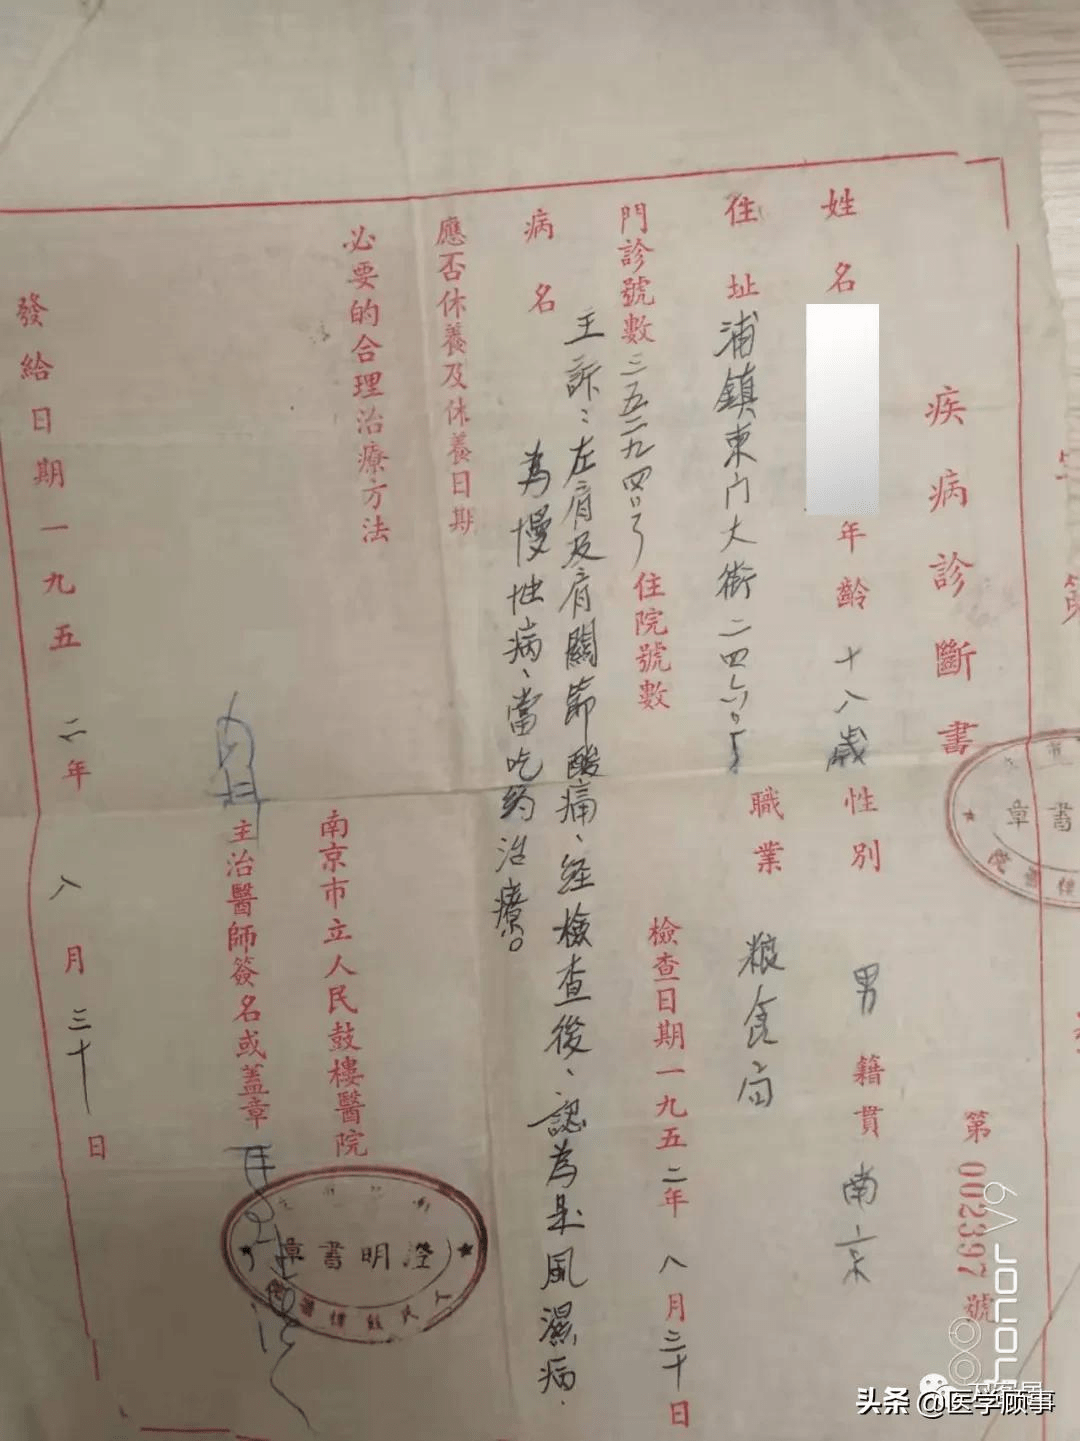 第002397號
疾病診斷書
姓名 年齡十八歲性別 男 籍貫 南京
住址浦鎮東門大街二四六号 職業 粮食局
門診號數三五二九四号 住院號數 檢查日期一九五二年八月三十日
病名
主訴:左肩及肩關節酸痛、經檢查後、認為是風濕病、
為慢性病、當吃药治療。
應否休養及休養日期
必要的合理治療方法
南京市立人民鼓樓醫院
主治醫師簽名或蓋章
證明書章
發給日期一九五二年八月三十日
章書
honor V9
头条 @医学顾事